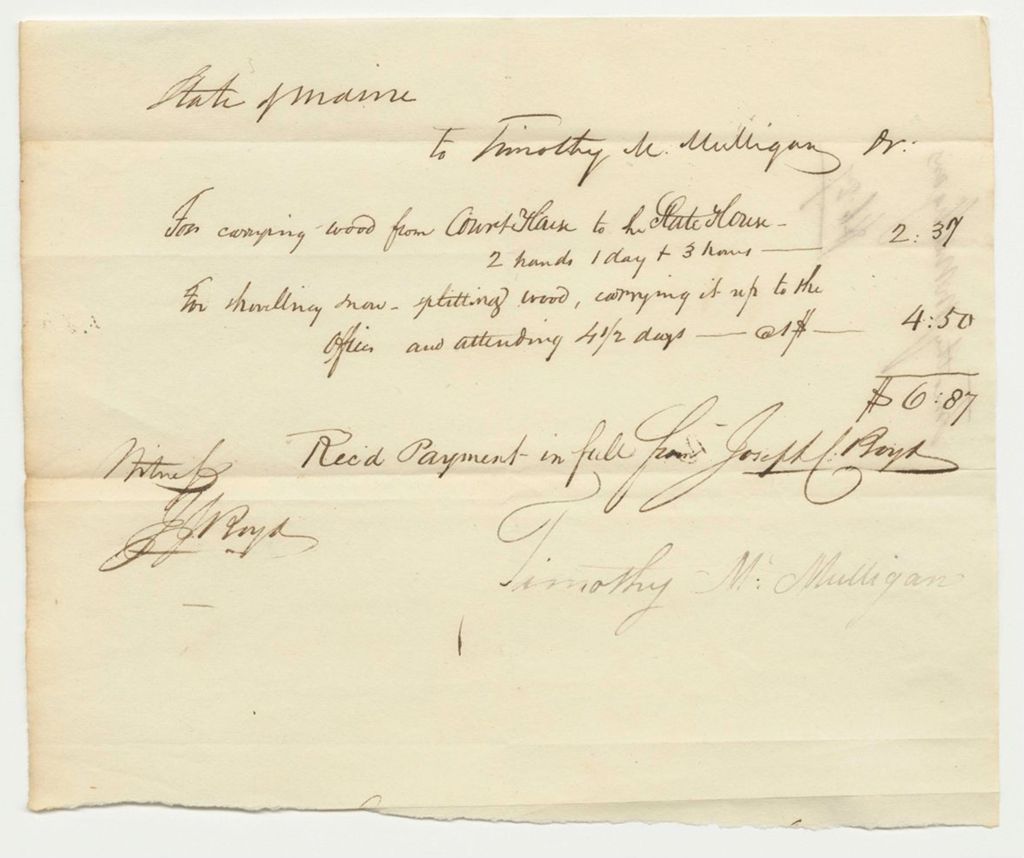 State of Maine
to Timothy M. Mulligan Dr:
For carrying wood from Court House to he State House - 2:37
2 hands 1 day + 3 hours —
For shovelling snow - splitting wood, carrying it up to the
Offices and attending 4 1/2 days — @ 1$ — 4:50
$ 6:87
Rec'd Payment in full from Joseph C. Boyd
Witness
J J Boyd
Timothy Mc Mulligan